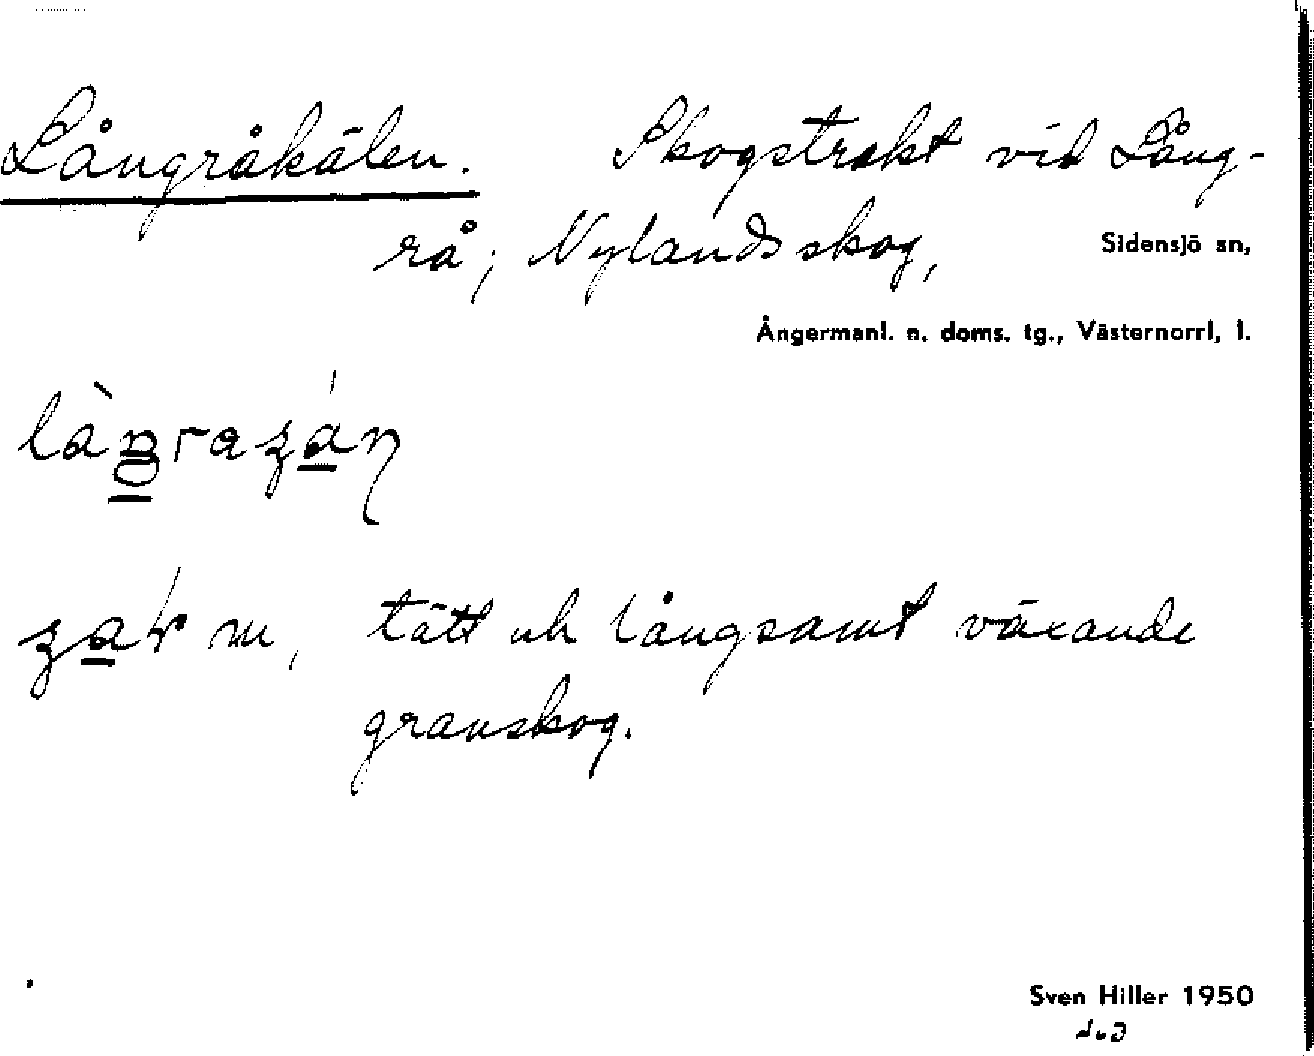 Långråkälen. Skogstrakt vid Lång-
rå; Nylandsskog,
Sidensjö sn,
Ångermanl. n. doms. tg., Västernorrl. l.
m, tätt och långsamt växande
granskog.
Sven Hiller 1950